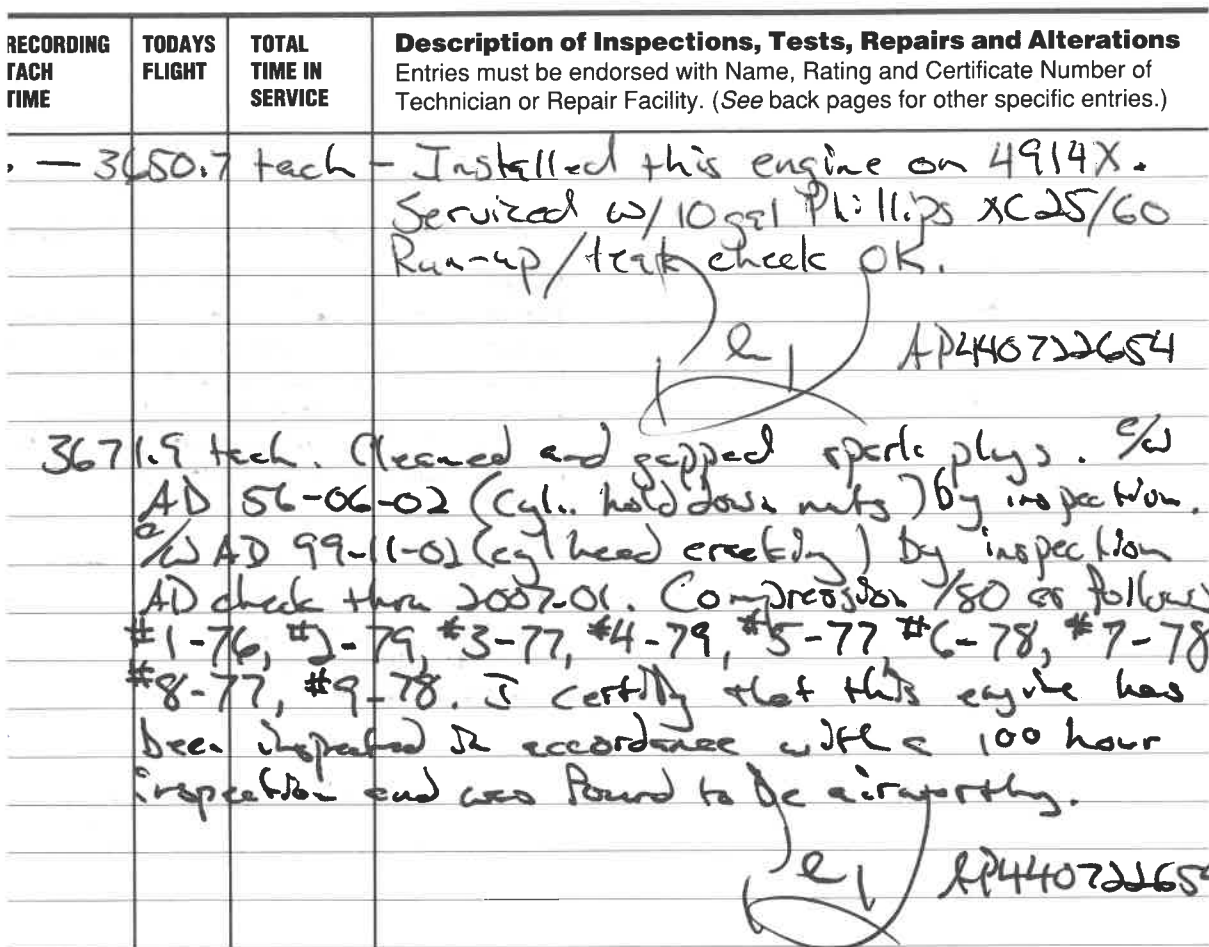 RECORDING TACH TIME
TODAYS FLIGHT
TOTAL TIME IN SERVICE
Description of Inspections, Tests, Repairs and Alterations
Entries must be endorsed with Name, Rating and Certificate Number of
Technician or Repair Facility. (See back pages for other specific entries.)
. — 3650.7 tach - Installed this engine on 4914X.
Serviced w/ 10 gal Phillips XC25/60
Run-up/leak check OK.
AP440722654
3671.9 tach. Cleaned and gapped spark plugs. c/w
AD 56-06-02 (Cyl. hold down nuts) by inspection.
c/w AD 99-11-02 (cyl head cracking) by inspection
AD check thru 2007-01. Compression /80 as follows
#1-76, #2-79, #3-77, #4-79, #5-77 #6-78, #7-78
#8-77, #9-78. I certify that this engine has
been inspected in accordance with a 100 hour
inspection and was found to be airworthy.
AP44072265